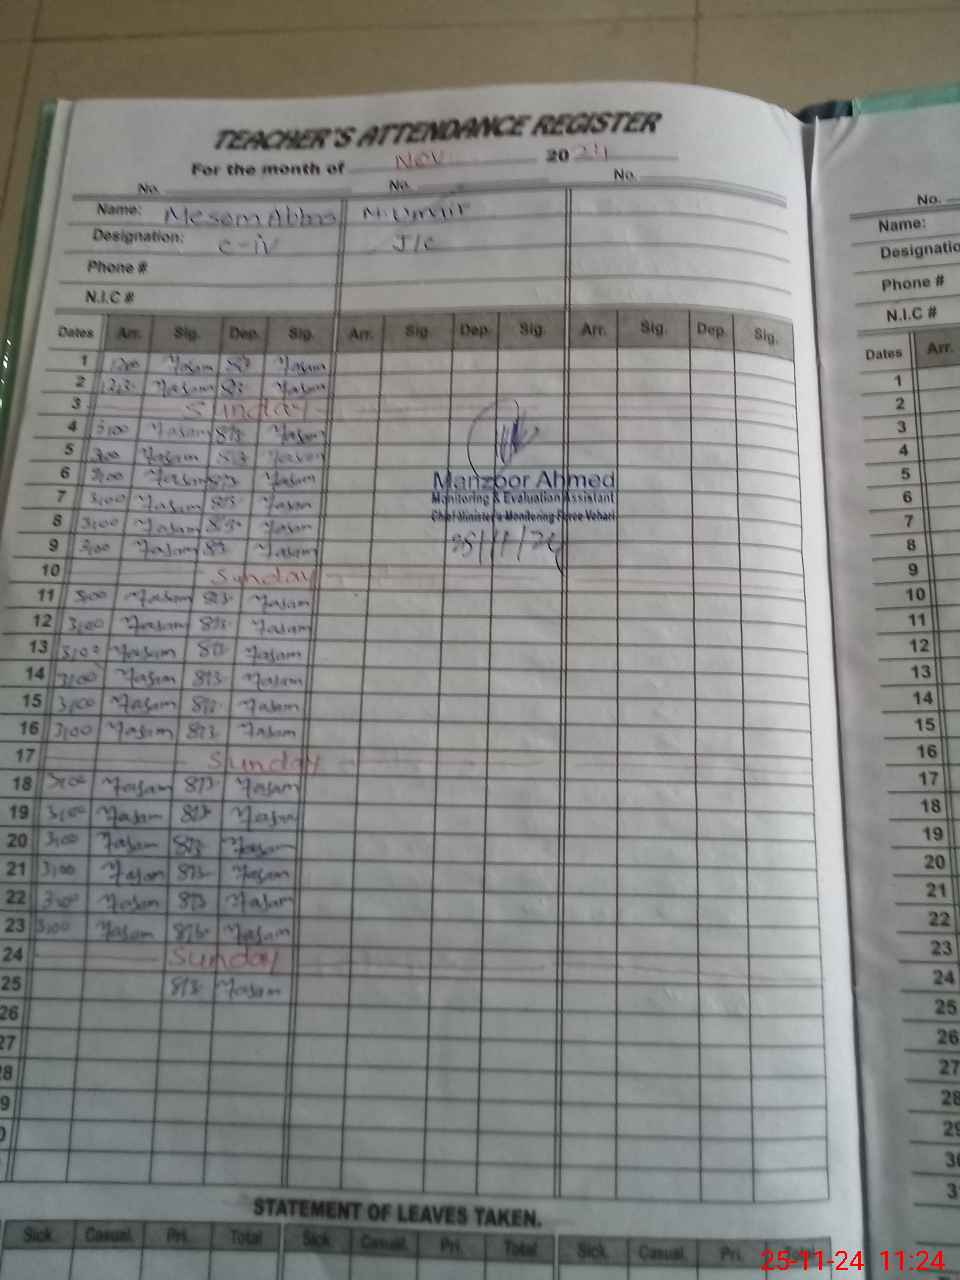 TEACHER'S ATTENDANCE REGISTER
For the month of Nov 2024
No. No. No.
Name: Mesam Abbas M. Umair
Designation: C-iv J/c
Phone #
N.I.C #
Dates Arr. Sig. Dep. Sig. Arr. Sig. Dep. Sig. Arr. Sig. Dep. Sig.
1 Mesam Mesam
2 Mesam Mesam
3 Sunday
4 3:00 Mesam Mesam
5 3:00 Mesam Mesam
6 3:00 Mesam Mesam
7 3:00 Mesam Mesam
8 3:00 Mesam Mesam
9 3:00 Mesam Mesam
10 Sunday
11 3:00 Mesam Mesam
12 3:00 Mesam Mesam
13 3:00 Mesam Mesam
14 3:00 Mesam Mesam
15 3:00 Mesam Mesam
16 3:00 Mesam Mesam
17 Sunday
18 3:00 Mesam Mesam
19 3:00 Mesam Mesam
20 3:00 Mesam Mesam
21 3:00 Mesam Mesam
22 3:00 Mesam Mesam
23 3:00 Mesam Mesam
24 Sunday
25 Mesam
26
27
8
9
0
Manzoor Ahmed
Monitoring & Evaluation Assistant
Chief Minister's Monitoring Force Vehari
25/11/24
STATEMENT OF LEAVES TAKEN.
Sick. Casual. Pri. Total Sick. Casual. Pri. Total Sick. Casual. Pri. Total
No.
Name:
Designatio
Phone #
N.I.C #
Dates Arr.
1
2
3
4
5
6
7
8
9
10
11
12
13
14
15
16
17
18
19
20
21
22
23
24
25
26
27
28
29
30
3
25-11-24 11:24